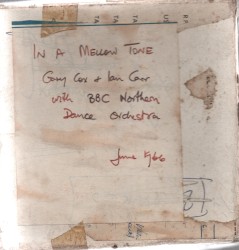 IN A MELLOW TONE
Gary Cox & Ian Carr
with BBC Northern
Dance Orchestra
June 1966